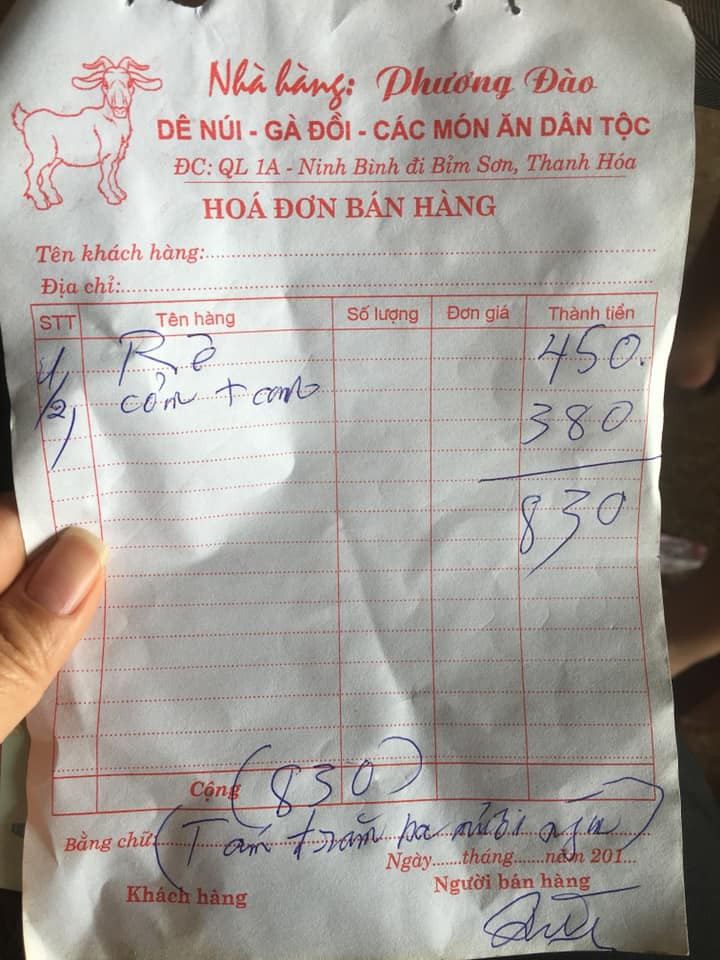 Nhà hàng: Phương Đào
DÊ NÚI - GÀ ĐỒI - CÁC MÓN ĂN DÂN TỘC
ĐC: QL 1A - Ninh Bình đi Bỉm Sơn, Thanh Hóa
HOÁ ĐƠN BÁN HÀNG
Tên khách hàng:
Địa chỉ:
STT Tên hàng Số lượng Đơn giá Thành tiền
1/ Rê 450.
2/ cơm + canh 380
830
Cộng (830)
Bằng chữ: (Tám trăm ba mươi ngàn)
Ngày......tháng......năm 201...
Khách hàng Người bán hàng